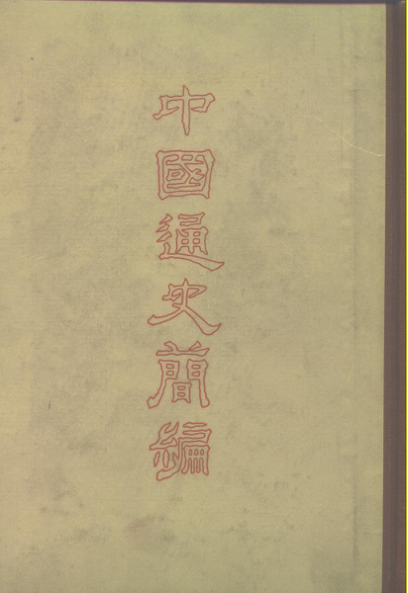 中國通史簡編